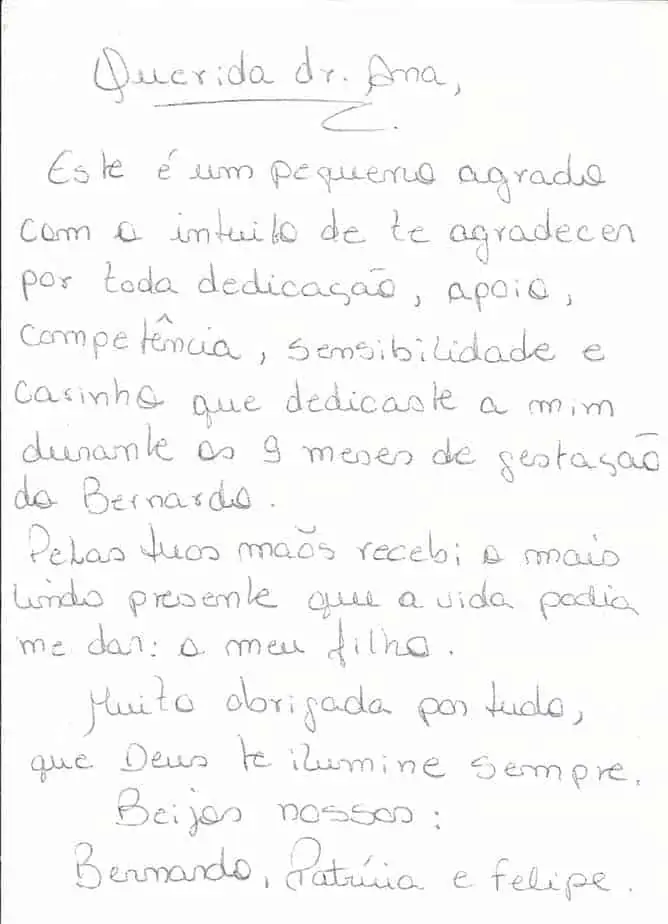 Querida dr. Ana,
Este é um pequeno agrado
com o intuito de te agradecer
por toda dedicação, apoio,
competência, sensibilidade e
carinho que dedicaste a mim
durante os 9 meses de gestação
do Bernardo.
Pelas tuas mãos recebi o mais
lindo presente que a vida podia
me dar: o meu filho.
Muito obrigada por tudo,
que Deus te ilumine sempre.
Beijos nossos:
Bernardo, Patrícia e Felipe.